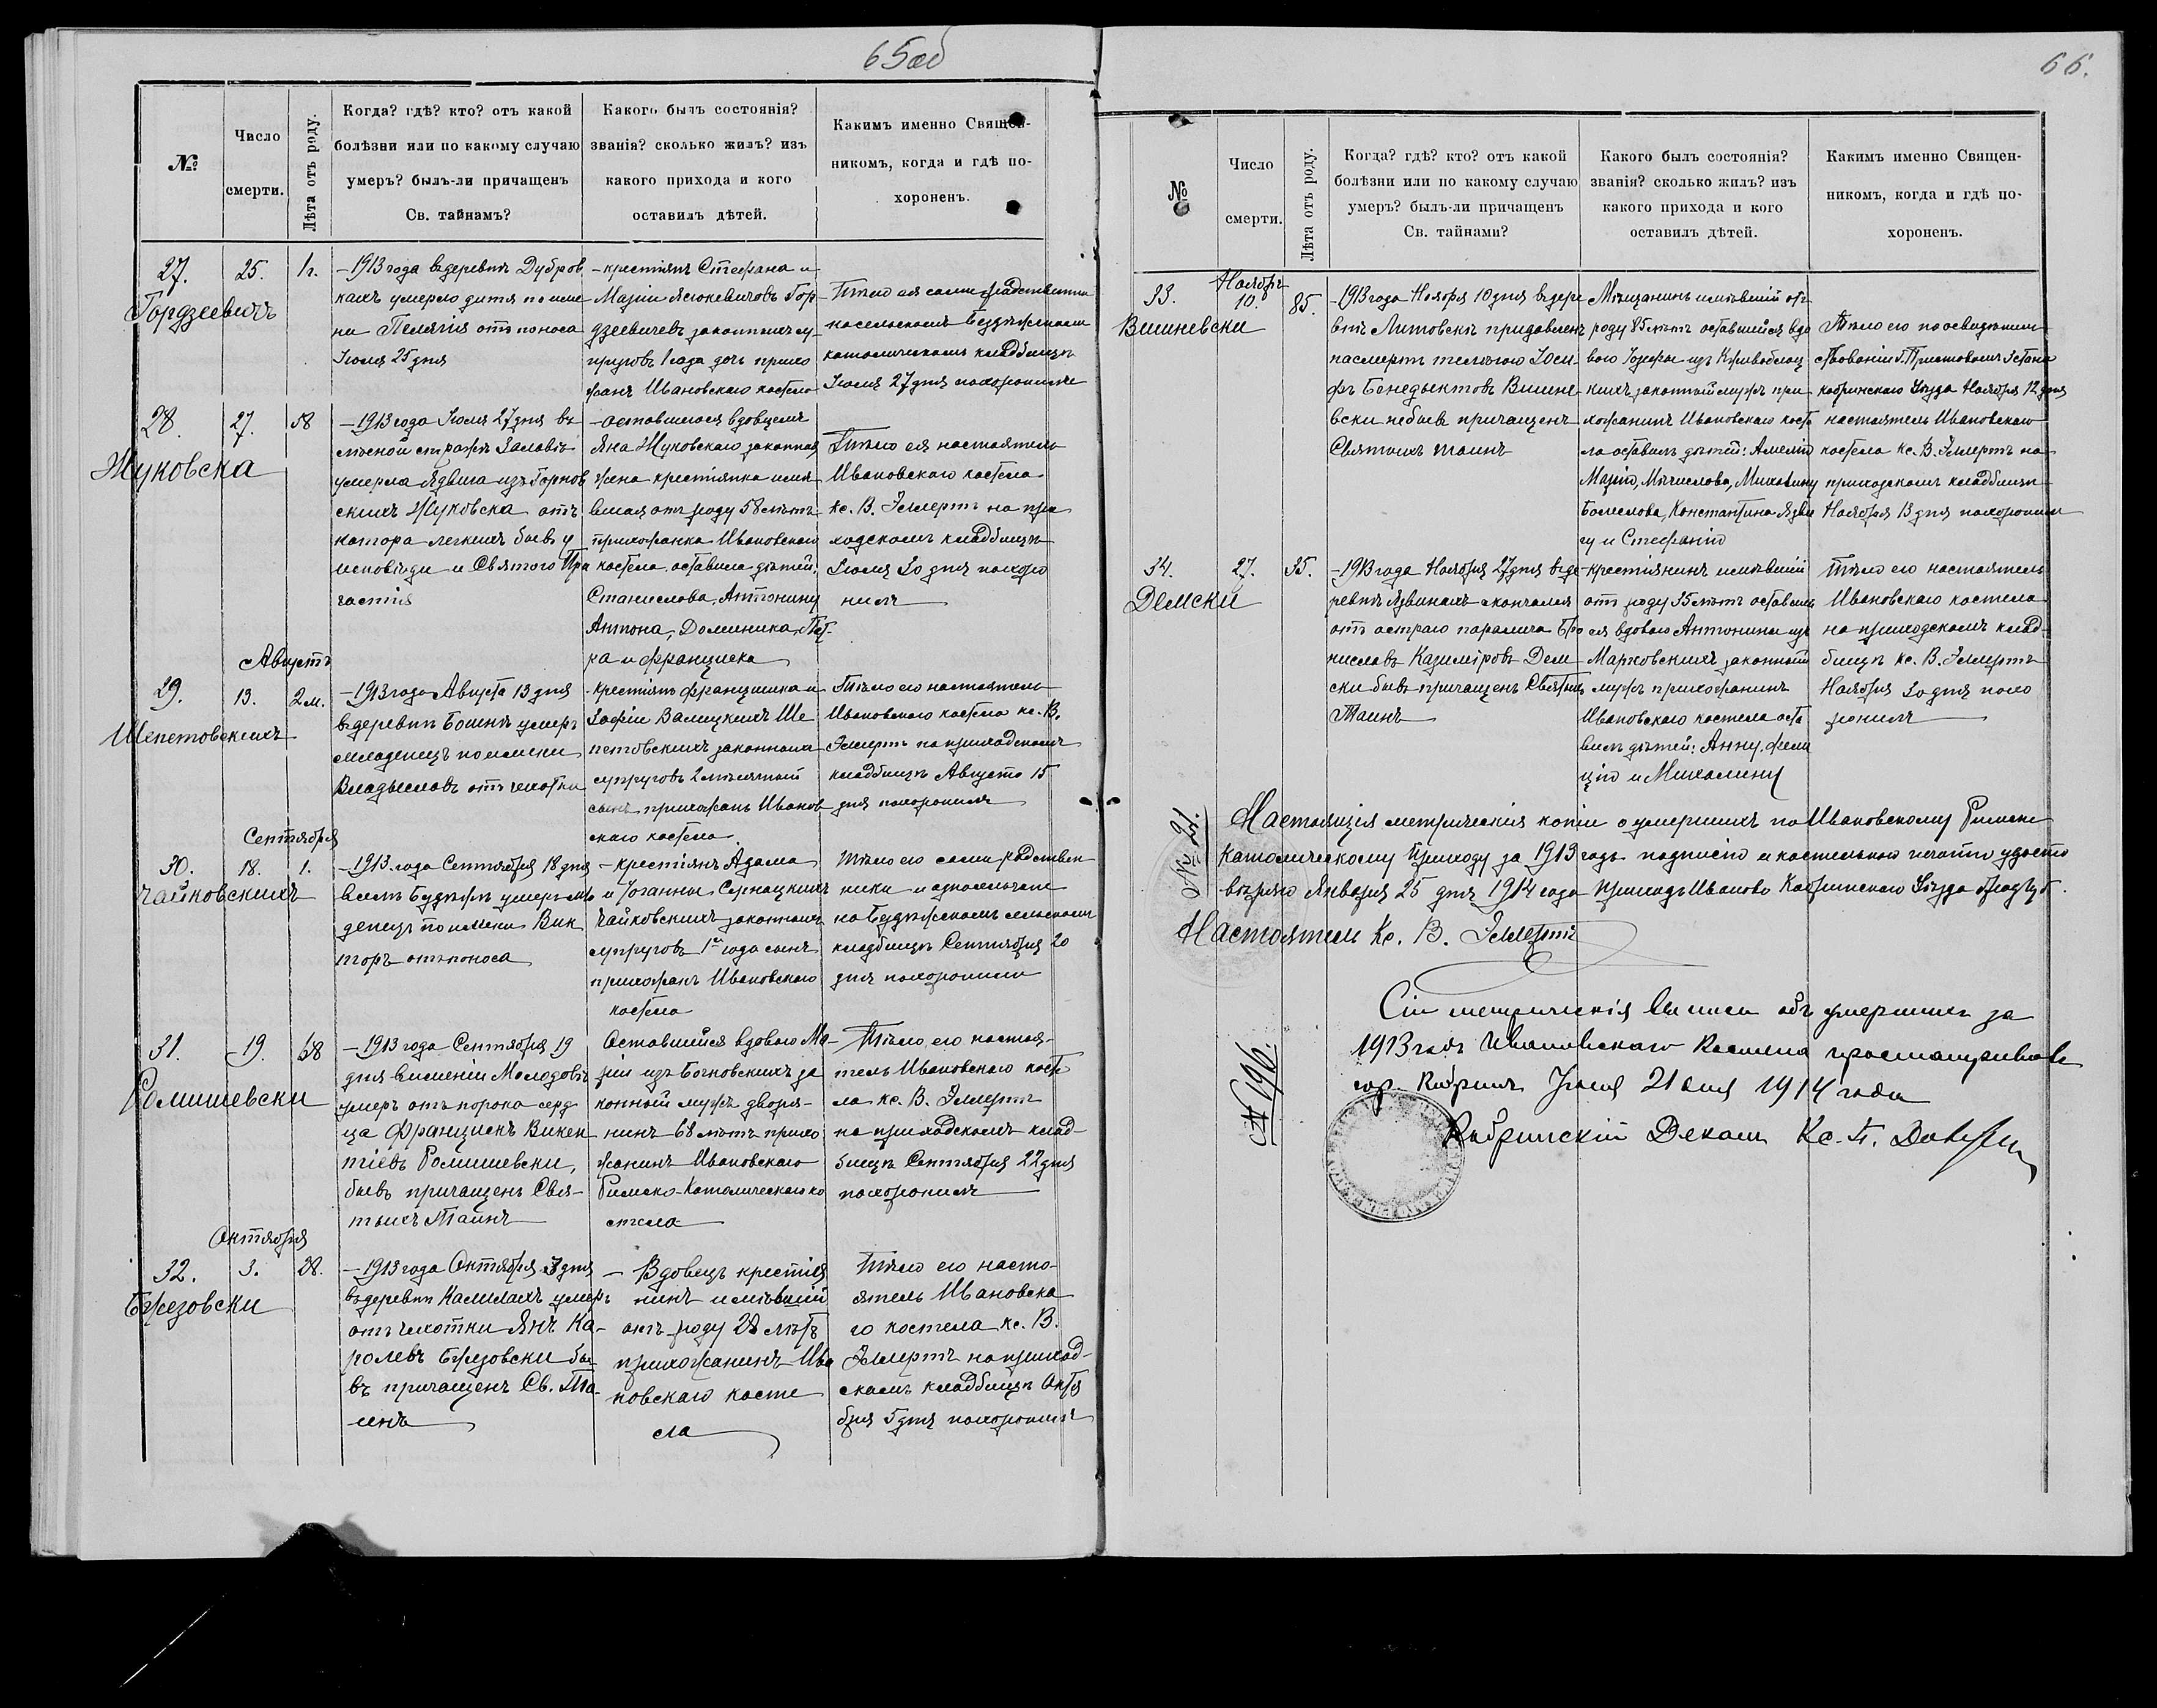 65об
№
Число
смерти.
Лѣта отъ роду.
Когда? гдѣ? кто? отъ какой
болѣзни или по какому случаю
умеръ? былъ-ли причащенъ
Св. тайнамъ?
Какого былъ состоянія?
званія? сколько жилъ? изъ
какого прихода и кого
оставилъ дѣтей.
Какимъ именно Священ-
никомъ, когда и гдѣ по-
хороненъ.
27.
Гордзеевичъ
25.
1г.
— 1913 года въ деревнѣ Дубров
кахъ умерло дитя по име
ни Пелягія отъ поноса
Іюля 25 дня
— крестіянъ Стефана и
Маріи Ясюкевичовъ Гор-
дзеевичевъ законныхъ су-
пруговъ 1 года дочь прихо
жанъ Ивановскаго костела
Тѣло ея сами родственники
на сельскомъ Бездѣжскомъ
католическомъ кладбищѣ
Іюля 27 дня похоронили
28.
Жуковска
27.
58
— 1913 года Іюля 27 дня въ
лѣсной стражѣ Заловіъ
умерла Ядвига изъ Горнов
скихъ Жуковска отъ
катара легкихъ бывъ у
исповѣди и Святого При
частія
— оставшагося вдовцемъ
Яна Жуковскаго законная
жена крестіянка имѣв
шая отъ роду 58 лѣтъ
прихожанка Ивановскаго
костела. оставила дѣтей:
Станислава, Антонину
Антона, Доминика, Пет-
ра и Францишка
Тѣло ея настоятель
Ивановскаго костела
Кс. В. Эллертъ на при
ходскомъ кладбищѣ
Іюля 30 дня похоро
нилъ
Августъ
29.
Шепетовскихъ
13.
2м.
— 1913 года Августа 13 дня
въ деревнѣ Бошнѣ умеръ
младенецъ по имени
Владыславъ отъ чахотки
- Крестіянъ Францишка и
Зофіи Валицкихъ Ше
петовскихъ законныхъ
супруговъ 2 мѣсячный
сынъ прихожанъ Иванов
скаго костела.
Тѣло его настоятель
Ивановскаго костела кс. В.
Эллертъ на приходскомъ
кладбищѣ Августа 15
дня похоронилъ
Сентября
30.
Чайковскихъ
18.
1.
— 1913 года Сентября 18 дня
въ селѣ Бездѣжѣ умеръ мла
денецъ по имени Вик
торъ отъ поноса
— крестіянъ Адама
и Іоганны Серпацкихъ
Чайковскихъ законныхъ
супруговъ 1го года сынъ
прихожанъ Ивановскаго
костела
Тѣло его сами родствен
ники и односельчане
на Бездѣжскомъ сельскомъ
кладбищѣ Сентября 20
дня похоронили
31.
Ромишевски
19.
68
— 1913 года Сентября 19
дня въ имѣніи Молодовіъ
умеръ отъ порока серд
ца Францискъ Викен
тіевъ Ромишевски,
бывъ причащенъ Свя-
тыхъ Таинъ
Оставшійся вдовою Ма-
ріи изъ Бочковскихъ за
конный мужъ дворя-
нинъ 68 лѣтъ прихо
жанинъ Ивановскаго
Римско-Католическаго ко
стела
Тѣло его настоя-
тель Ивановскаго косте
ла кс. В. Эллертъ
на приходскомъ клад-
бищѣ Сентября 22 дня
похоронилъ
Октября
32.
Бжезовски
3.
28.
— 1913 года Октября 3 дня
въ деревнѣ Калилахъ умеръ
отъ чахотки Янъ Ка-
ролевъ Бжезовски бы
въ причащенъ Св. Та-
инъ
— Вдовецъ крестія
нинъ имѣвшій
отъ роду 28 лѣтъ
прихожанинъ Ива
новскаго косте
ла
Тѣло его насто-
ятель Ивановска
го костела кс. В.
Эллертъ на приход-
скомъ кладбищѣ Октя
бря 5 дня похоронилъ
66.
№
Число
смерти.
Лѣта отъ роду.
Когда? гдѣ? кто? отъ какой
болѣзни или по какому случаю
умеръ? былъ-ли причащенъ
Св. тайнами?
Какого былъ состоянія?
званія? сколько жилъ? изъ
какого прихода и кого
оставилъ дѣтей.
Какимъ именно Священ-
никомъ, когда и гдѣ по-
хороненъ.
33.
Вишневски
Ноябрь
10.
85.
— 1913 года Ноября 10 дня въ дере
внѣ Литовскѣ придавленъ
на смерть телѣгою Іоси-
фъ Бенедыктовъ Вишне-
вски не бывъ причащенъ
Святыхъ таинъ
Мѣщанинъ имѣвшій отъ
роду 85 лѣтъ оставшійся вдо
вою Іозефы изъ Кривоблоц
кихъ законный мужъ при-
хожанинъ Ивановскаго косте
ла оставилъ дѣтей: Амелію
Марію, Мѣчислава, Михалину
Болеслава, Константина Ядви
гу и Стефанію
Тѣло его по освидѣтель
ствованіи г. Приставомъ 3 стана
Кобринскаго Уѣзда Ноября 12 дня
настоятель Ивановскаго
костела кс. В. Эллертъ на
приходскомъ кладбищѣ
Ноября 13 дня похоронилъ
34.
Демски
27.
35.
— 1913 года Ноября 27 дня въ де-
ревнѣ Язвинахъ скончался
отъ остраго паралича Бро
ниславъ Казиміровъ Дем
ски бывъ причащенъ Святыхъ
Таинъ
крестіянинъ имѣвшій
отъ роду 35 лѣтъ оставшій
ся вдовою Антонины изъ
Марковскихъ законный
мужъ прихожанинъ
Ивановскаго костела оста
вилъ дѣтей: Анну, Фели
цію и Михалину
Тѣло его настоятель
Ивановскаго костела
на приходскомъ клад-
бищѣ кс. В. Эллертъ
Ноября 30 дня похо
ронилъ
№ 21.
Настоящія метрическія копіи о умершихъ по Ивановскому Римско
Католическому Приходу за 1913 годъ подписію и костельною печатію удосто
вѣряю Января 25 дня 1914 года Приходъ Иваново Кобринскаго Уѣзда Грод. Губ.
Настоятель Кс. В. Эллертъ
№ 196.
Сіи метрическія выписи объ умершихъ за
1913 годъ Ивановскаго Костела просматривалъ
гор. Кобринъ Іюня 21 дня 1914 года
Кобринскій Деканъ Кс. П.